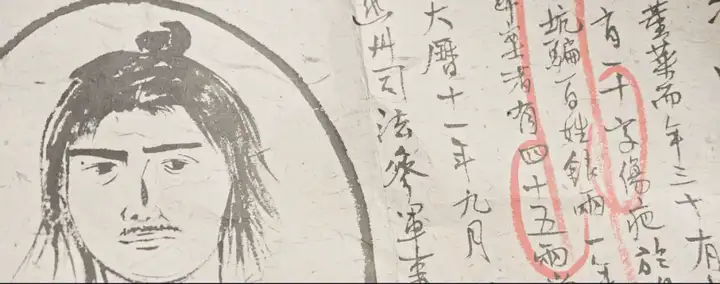 葉而年三十有
有一十字傷疤於
坑騙百姓銀兩一年
者有四十五兩
大曆十一年九月
州司法參軍